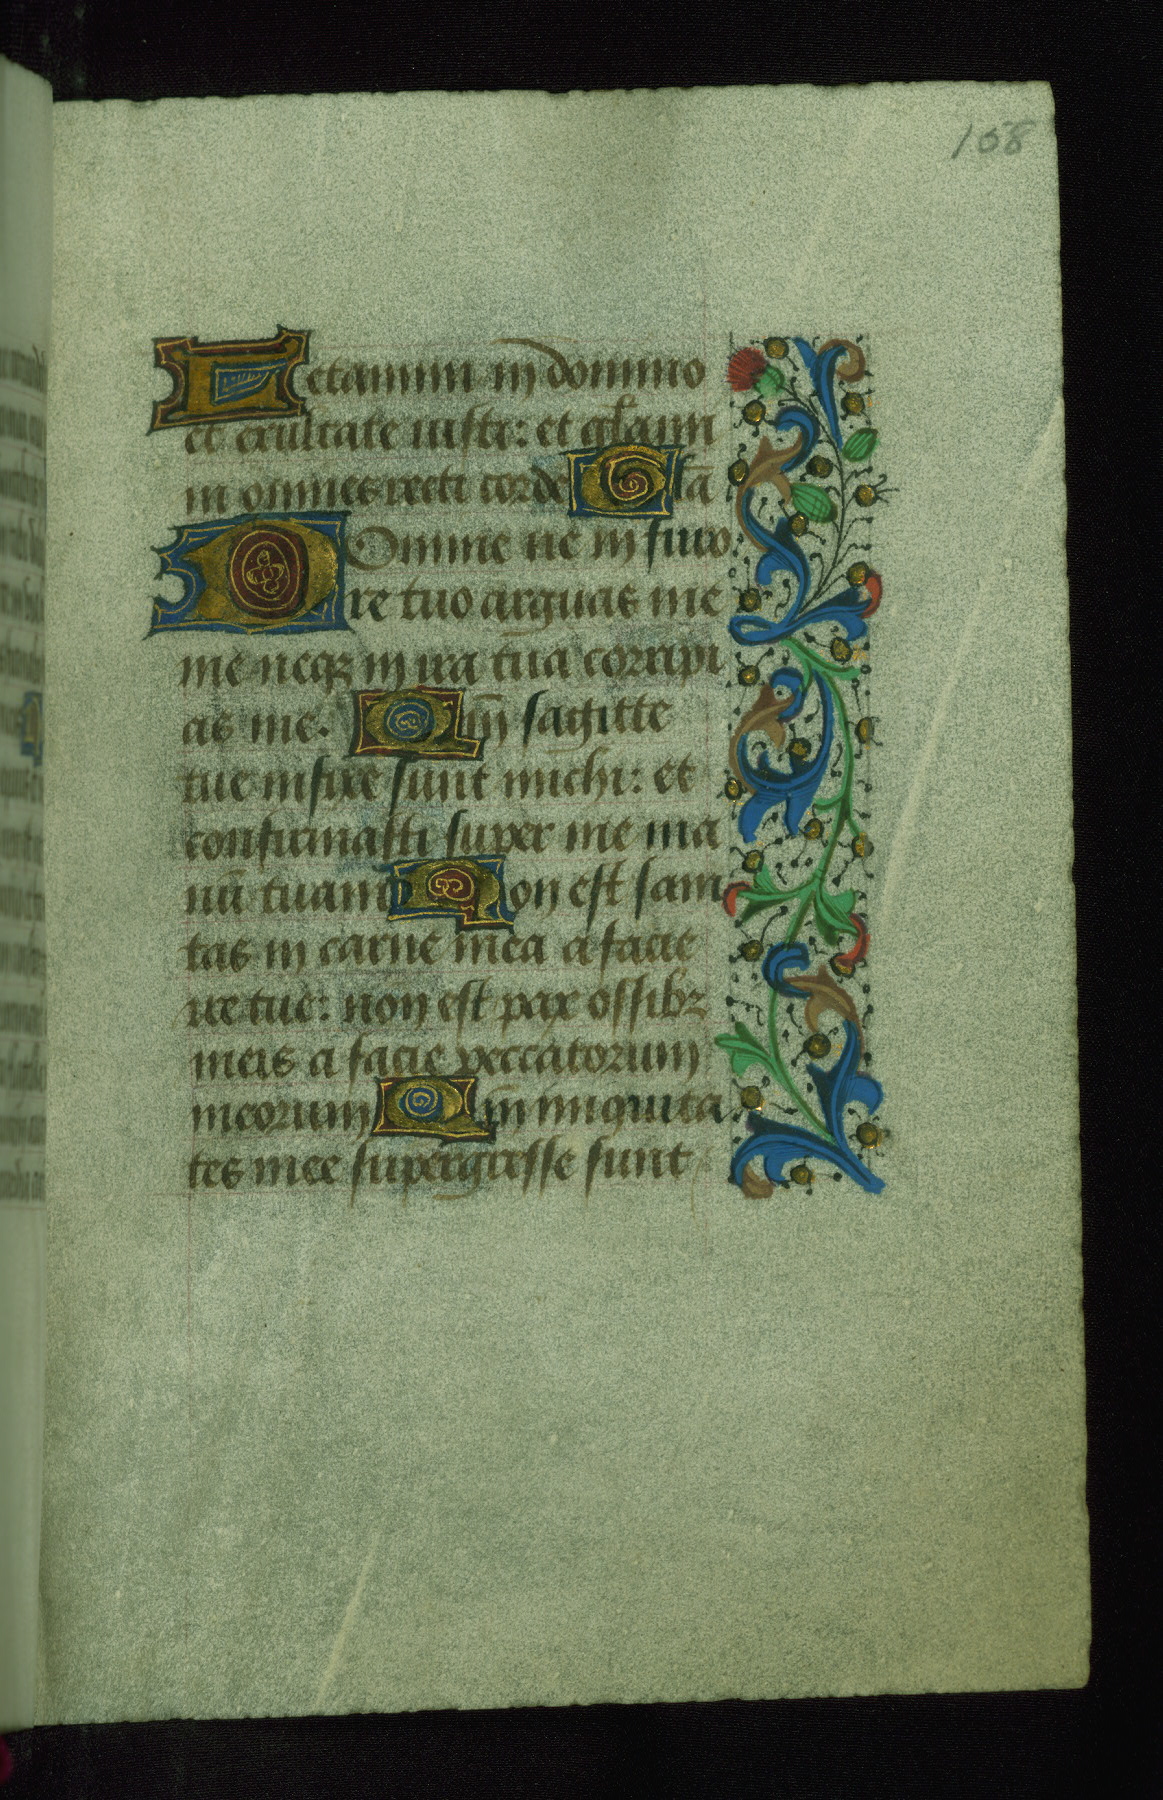 158
Letamini in domino
et exultate iusti: et gl'ami
ni omnes recti corde Gl'a
DOmine ne in furo
re tuo arguas me
me neqz in ira tua corripi
as me. Qm̄ sagitte
tue infixe sunt michi: et
confirmasti super me ma
nū tuam Non est sani
tas in carne mea a facie
ire tue: non est pax ossibz
meis a facie peccatorum
meorum Qm̄ iniquita
tes mee supergresse sunt